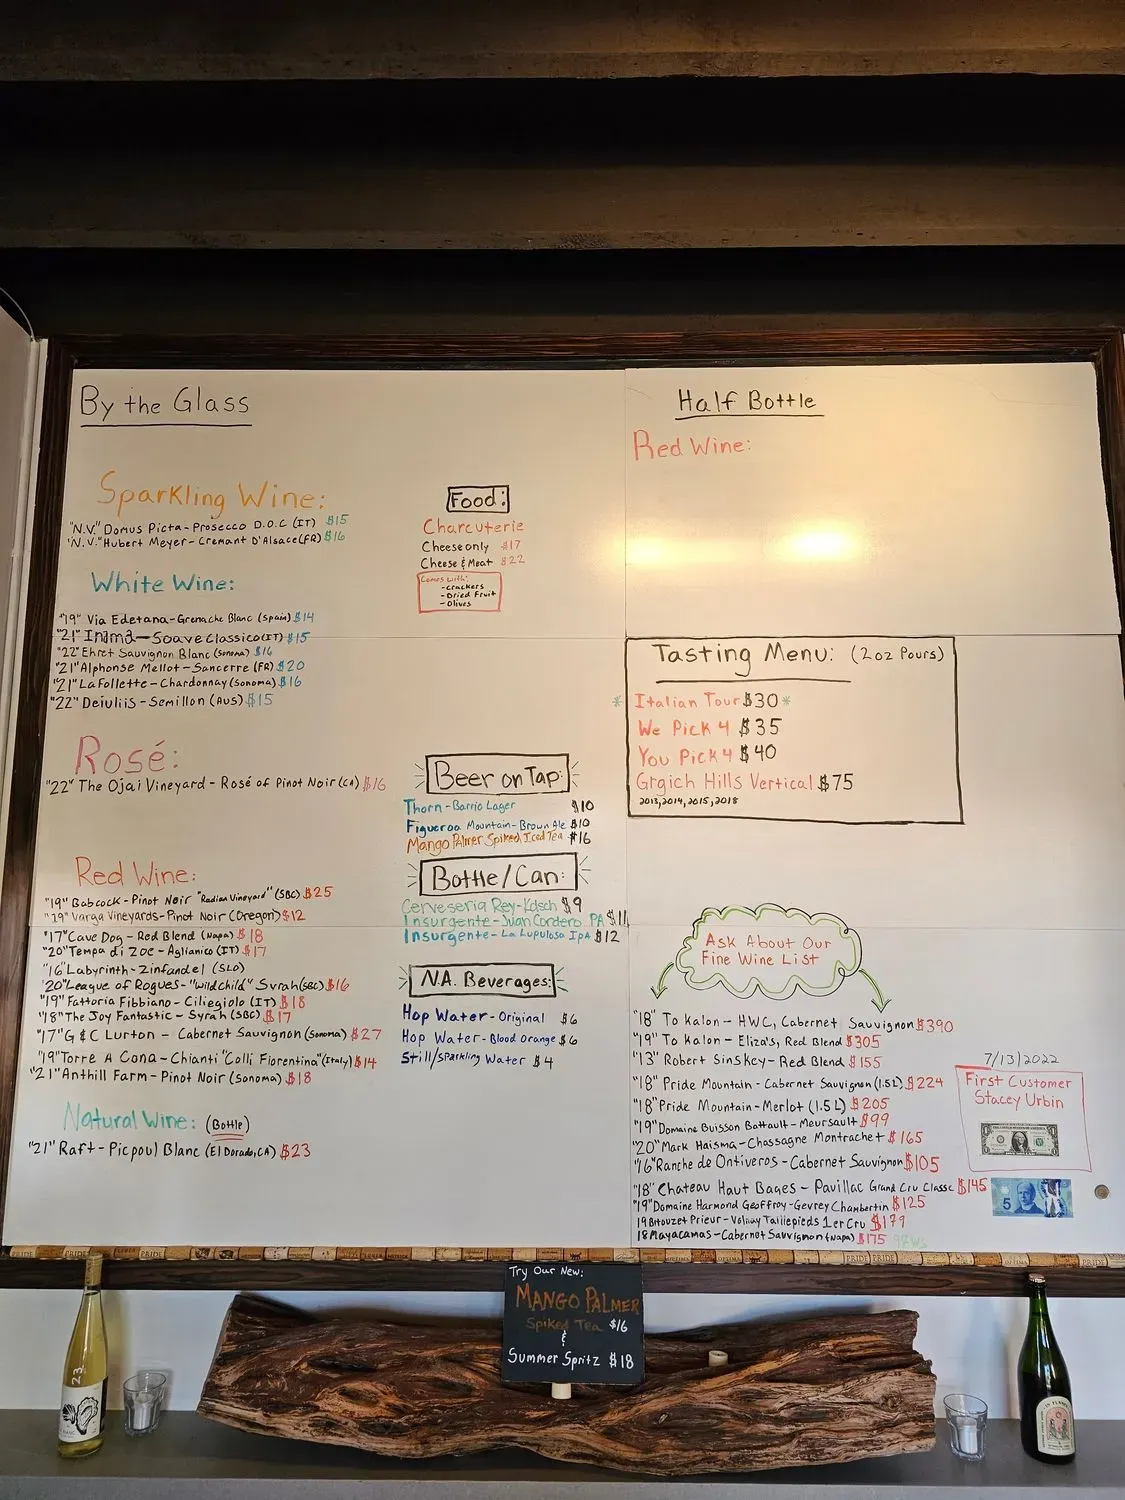 By the Glass
Sparkling Wine:
"N.V." Domus Picta - Prosecco D.O.C (IT) $15
"N.V." Hubert Meyer - Cremant D'Alsace (FR) $16
White Wine:
"19" Via Edetana - Grenache Blanc (Spain) $14
"21" Inama - Soave Classico (IT) $15
"22" Ehret Sauvignon Blanc (Sonoma) $16
"21" Alphonse Mellot - Sancerre (FR) $20
"21" LaFollette - Chardonnay (Sonoma) $16
"22" Deiuliis - Semillon (Aus) $15
Rosé:
"22" The Ojai Vineyard - Rosé of Pinot Noir (CA) $16
Red Wine:
"19" Babcock - Pinot Noir "Radian Vineyard" (SBC) $25
"19" Varga Vineyards - Pinot Noir (Oregon) $12
"17" Cave Dog - Red Blend (Napa) $18
"20" Tempa di Zoe - Aglianico (IT) $17
"16" Labyrinth - Zinfandel (SLO)
"20" League of Rogues - "Wildchild" Syrah (SBC) $16
"19" Fattoria Fibbiano - Ciliegiolo (IT) $18
"18" The Joy Fantastic - Syrah (SBC) $17
"17" G & C Lurton - Cabernet Sauvignon (Sonoma) $27
"19" Torre A Cona - Chianti "Colli Fiorentina" (Italy) $14
"21" Anthill Farm - Pinot Noir (Sonoma) $18
Natural Wine: (Bottle)
"21" Raft - Picpoul Blanc (El Dorado, CA) $23
Food:
Charcuterie
Cheese only $17
Cheese & Meat $22
Comes with:
- Crackers
- Dried Fruit
- Olives
Beer on Tap:
Thorn - Barrio Lager $10
Figueroa Mountain - Brown Ale $10
Mango Palmer Spiked Iced Tea $16
Bottle/Can:
Cerveseria Rey - Kolsch $9
Insurgente - Juan Cordero PA $11
Insurgente - La Lupulosa IPA $12
N.A. Beverages:
Hop Water - Original $6
Hop Water - Blood Orange $6
Still/Sparkling Water $4
Half Bottle
Red Wine:
Tasting Menu: (2oz Pours)
* Italian Tour $30 *
We Pick 4 $35
You Pick 4 $40
Grgich Hills Vertical $75
2013, 2014, 2015, 2018
Ask About Our
Fine Wine List
"18" To Kalon - HWC, Cabernet Sauvignon $390
"19" To Kalon - Eliza's, Red Blend $305
"13" Robert Sinskey - Red Blend $155
"18" Pride Mountain - Cabernet Sauvignon (1.5L) $224
"18" Pride Mountain - Merlot (1.5L) $205
"19" Domaine Buisson Battault - Meursault $99
"20" Mark Haisma - Chassagne Montrachet $165
"16" Ranche de Ontiveros - Cabernet Sauvignon $105
"18" Chateau Haut Bages - Pavillac Grand Cru Classe $145
"19" Domaine Harmond Geoffroy - Gevrey Chambertin $125
19 Bitouzet Prieur - Volnay Taillepieds 1er Cru $179
18 Mayacamas - Cabernet Sauvignon (Napa) $175
7/13/2022
First Customer
Stacey Urbin
5
PRIDE
PRIDE
PRIDE PRIDE
Try Our New:
MANGO PALMER
Spiked Tea $16
&
Summer Spritz $18
23